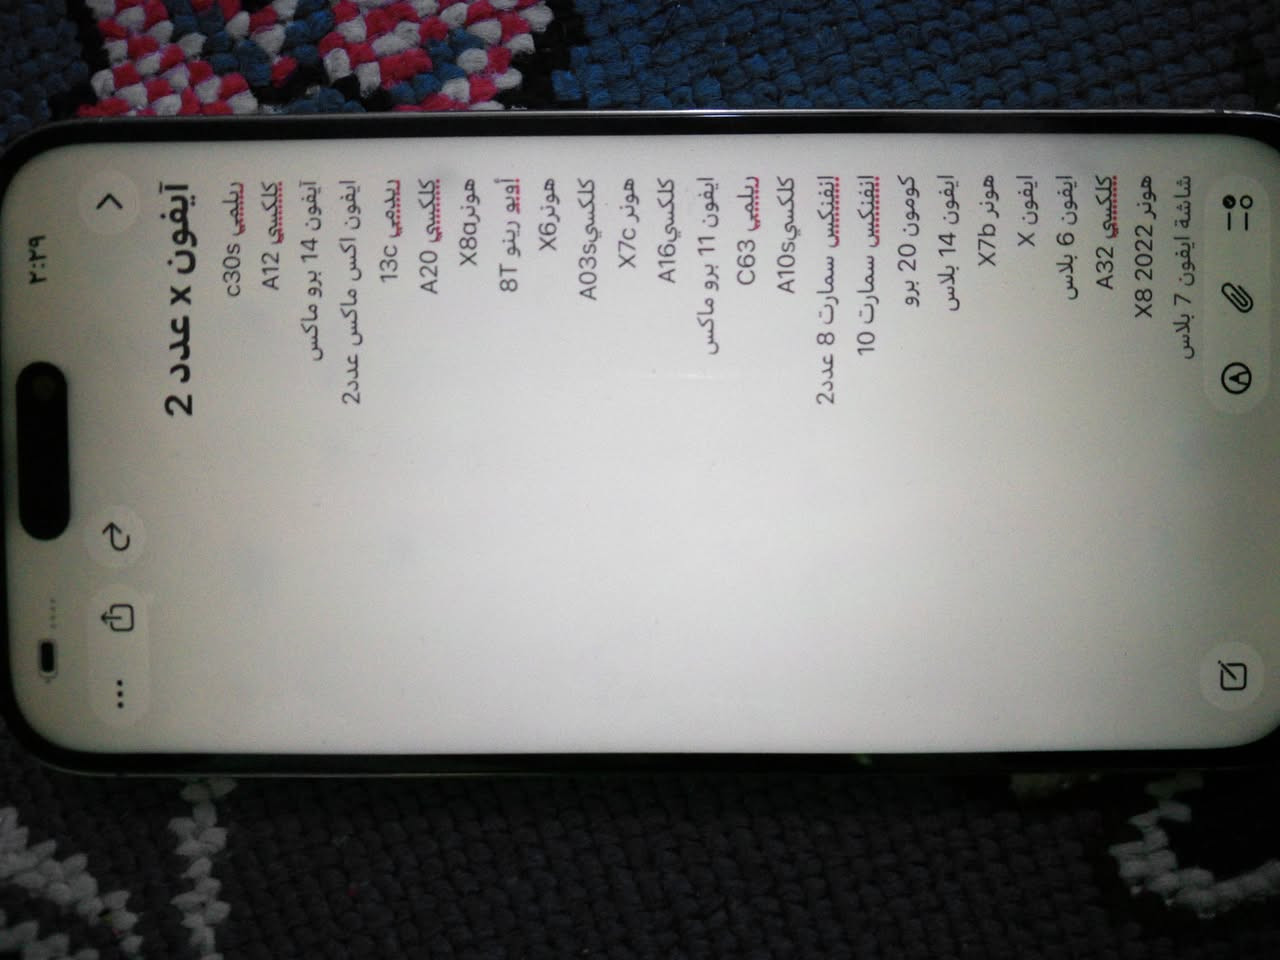 ٢:٢٩
آيفون x عدد 2
ريلمي c30s
كلكسي A12
آيفون 14 برو ماكس
ايفون اكس ماكس عدد2
ريدمي 13c
كلكسي A20
هونرX8a
أوبو رينو 8T
هونرX6
كلكسيA03s
هونر X7c
كلكسيA16
ايفون 11 برو ماكس
ريلمي C63
كلكسيA10s
إنفنكس سمارت 8 عدد2
إنفنكس سمارت 10
كومون 20 برو
ايفون 14 بلاس
هونر X7b
ايفون X
ايفون 6 بلاس
كلكسي A32
هونر X8 2022
شاشة ايفون 7 بلاس